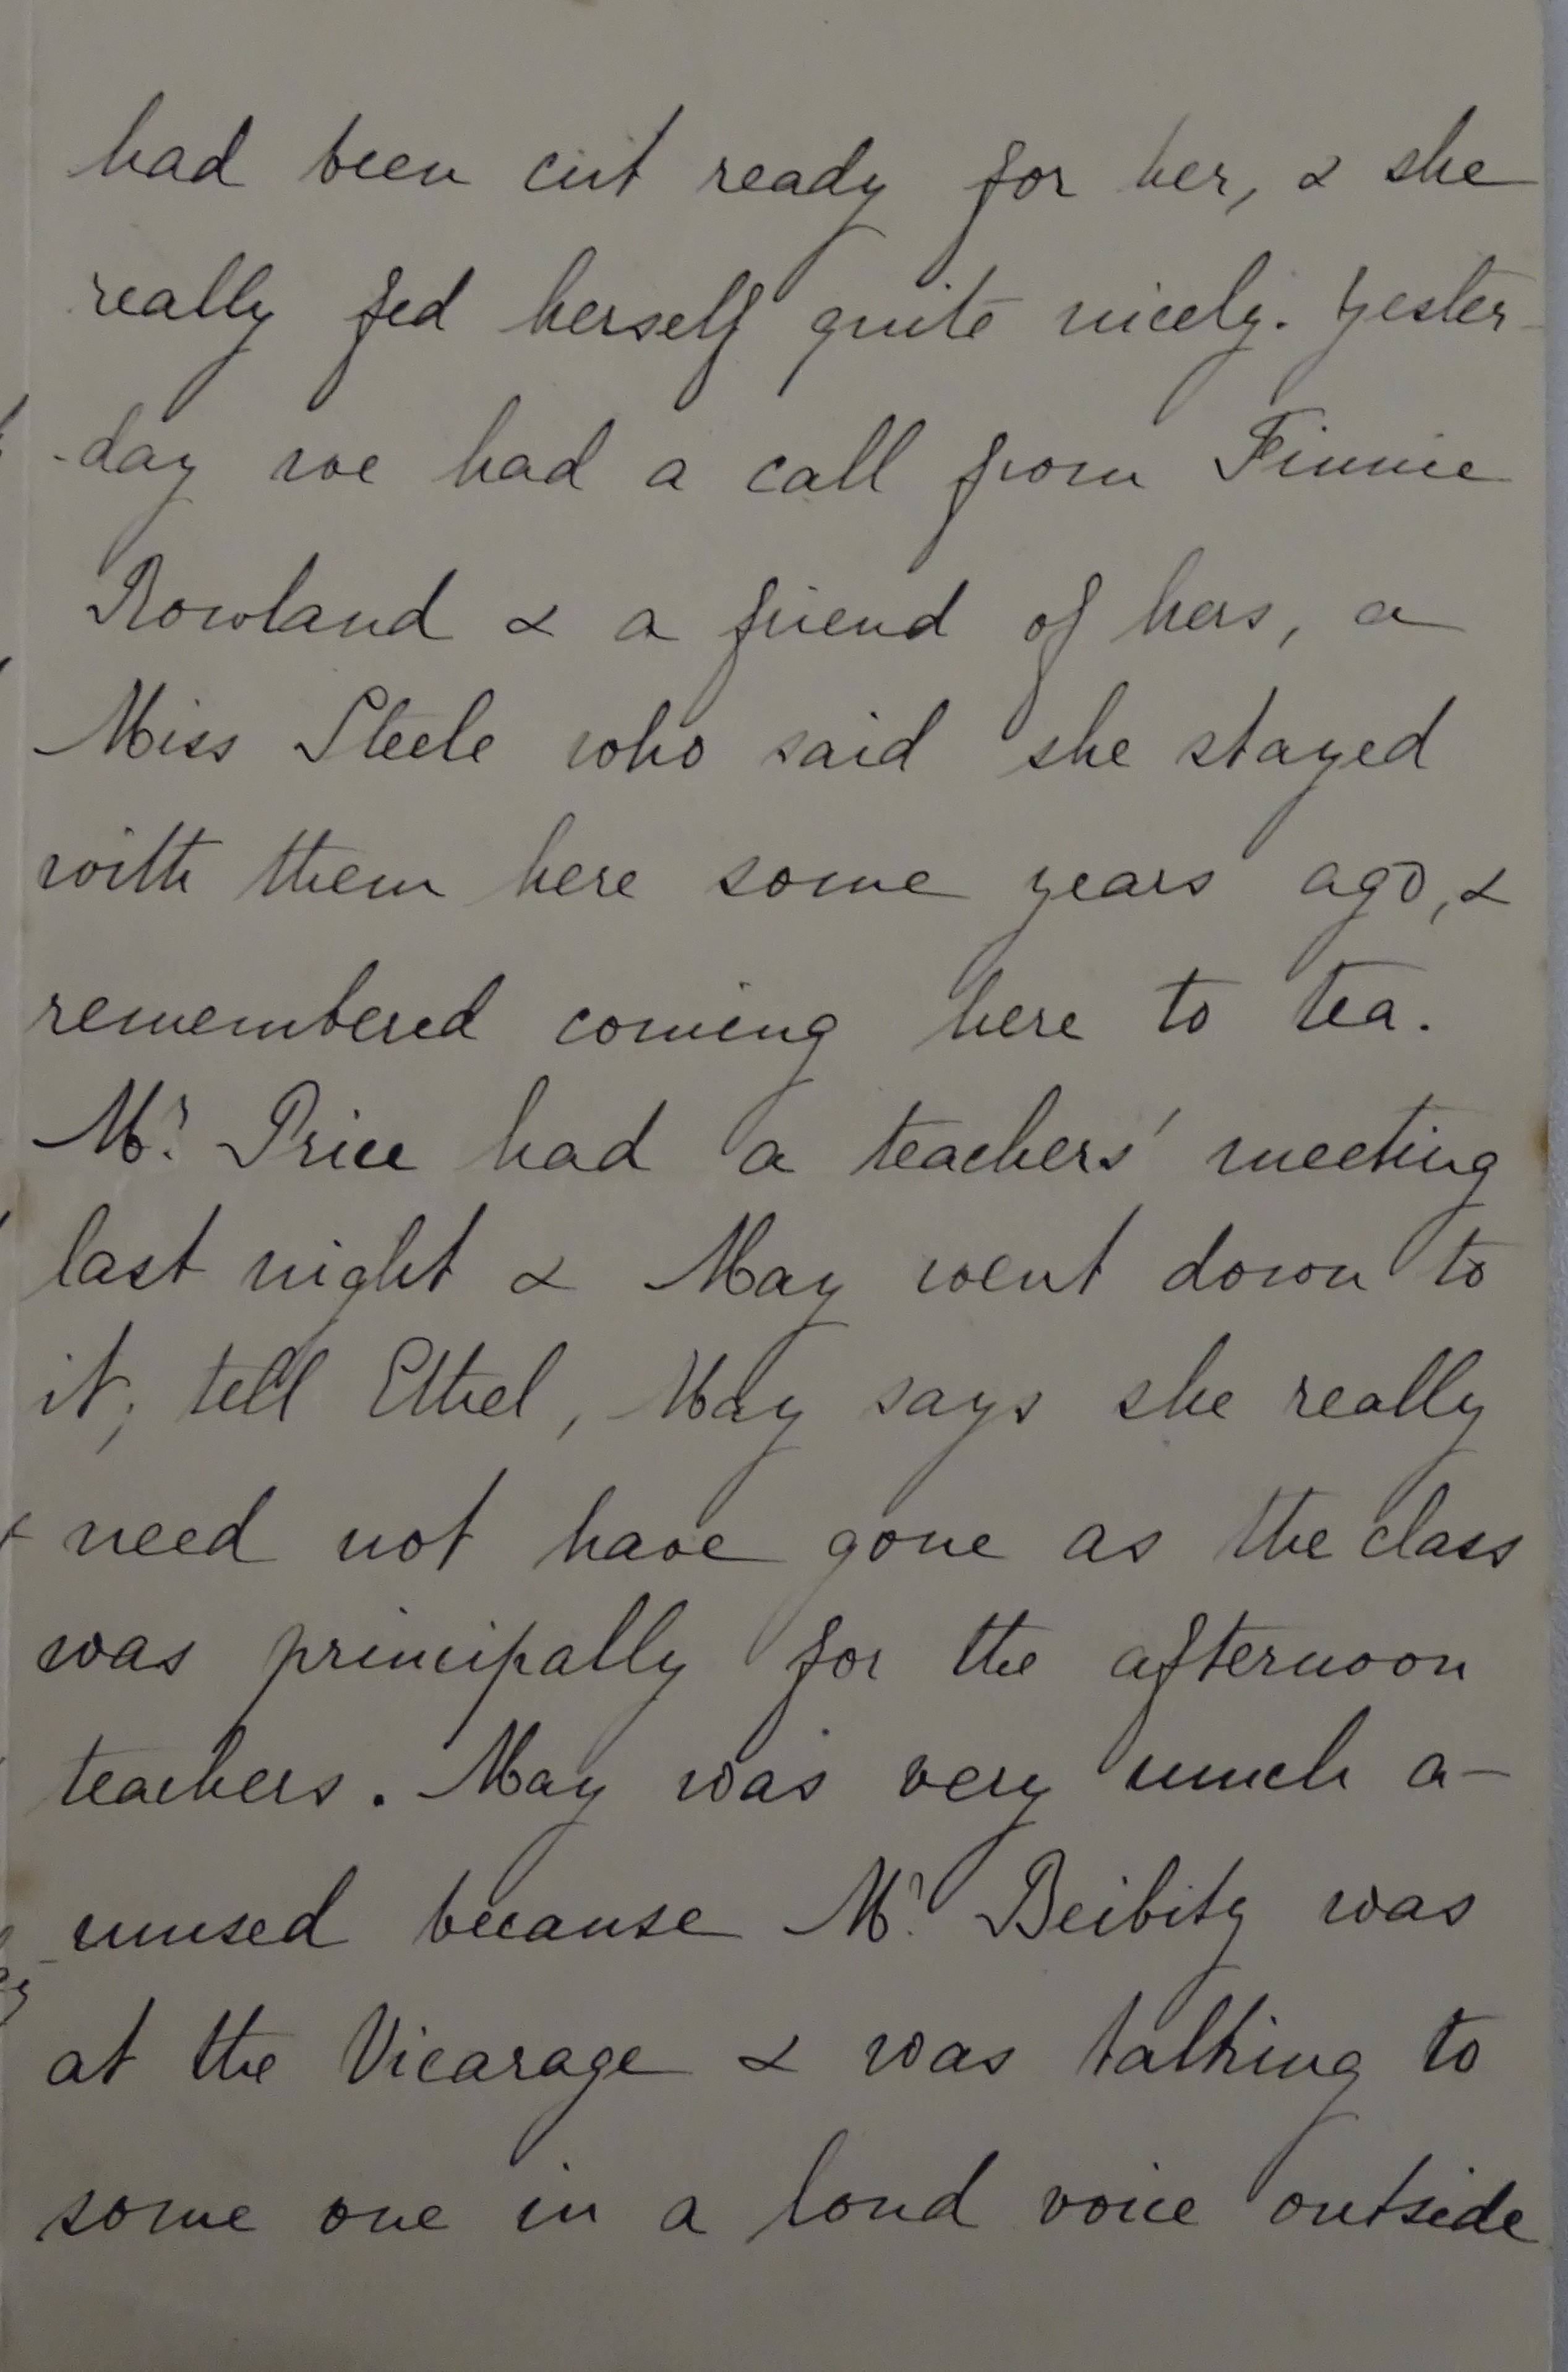 had been cut ready for her, & she
really fed herself quite nicely. Yester-
-day we had a call from Finnie
Rowland & a friend of hers, a
Miss Steele who said she stayed
with them here some years ago, &
remembered coming here to tea.
Mr. Price had a teachers' meeting
last night & May went down to
it; tell Ethel, May says she really
need not have gone as the class
was principally for the afternoon
teachers. May was very much a-
-mused because Mr. Beibity was
at the Vicarage & was talking to
some one in a loud voice outside